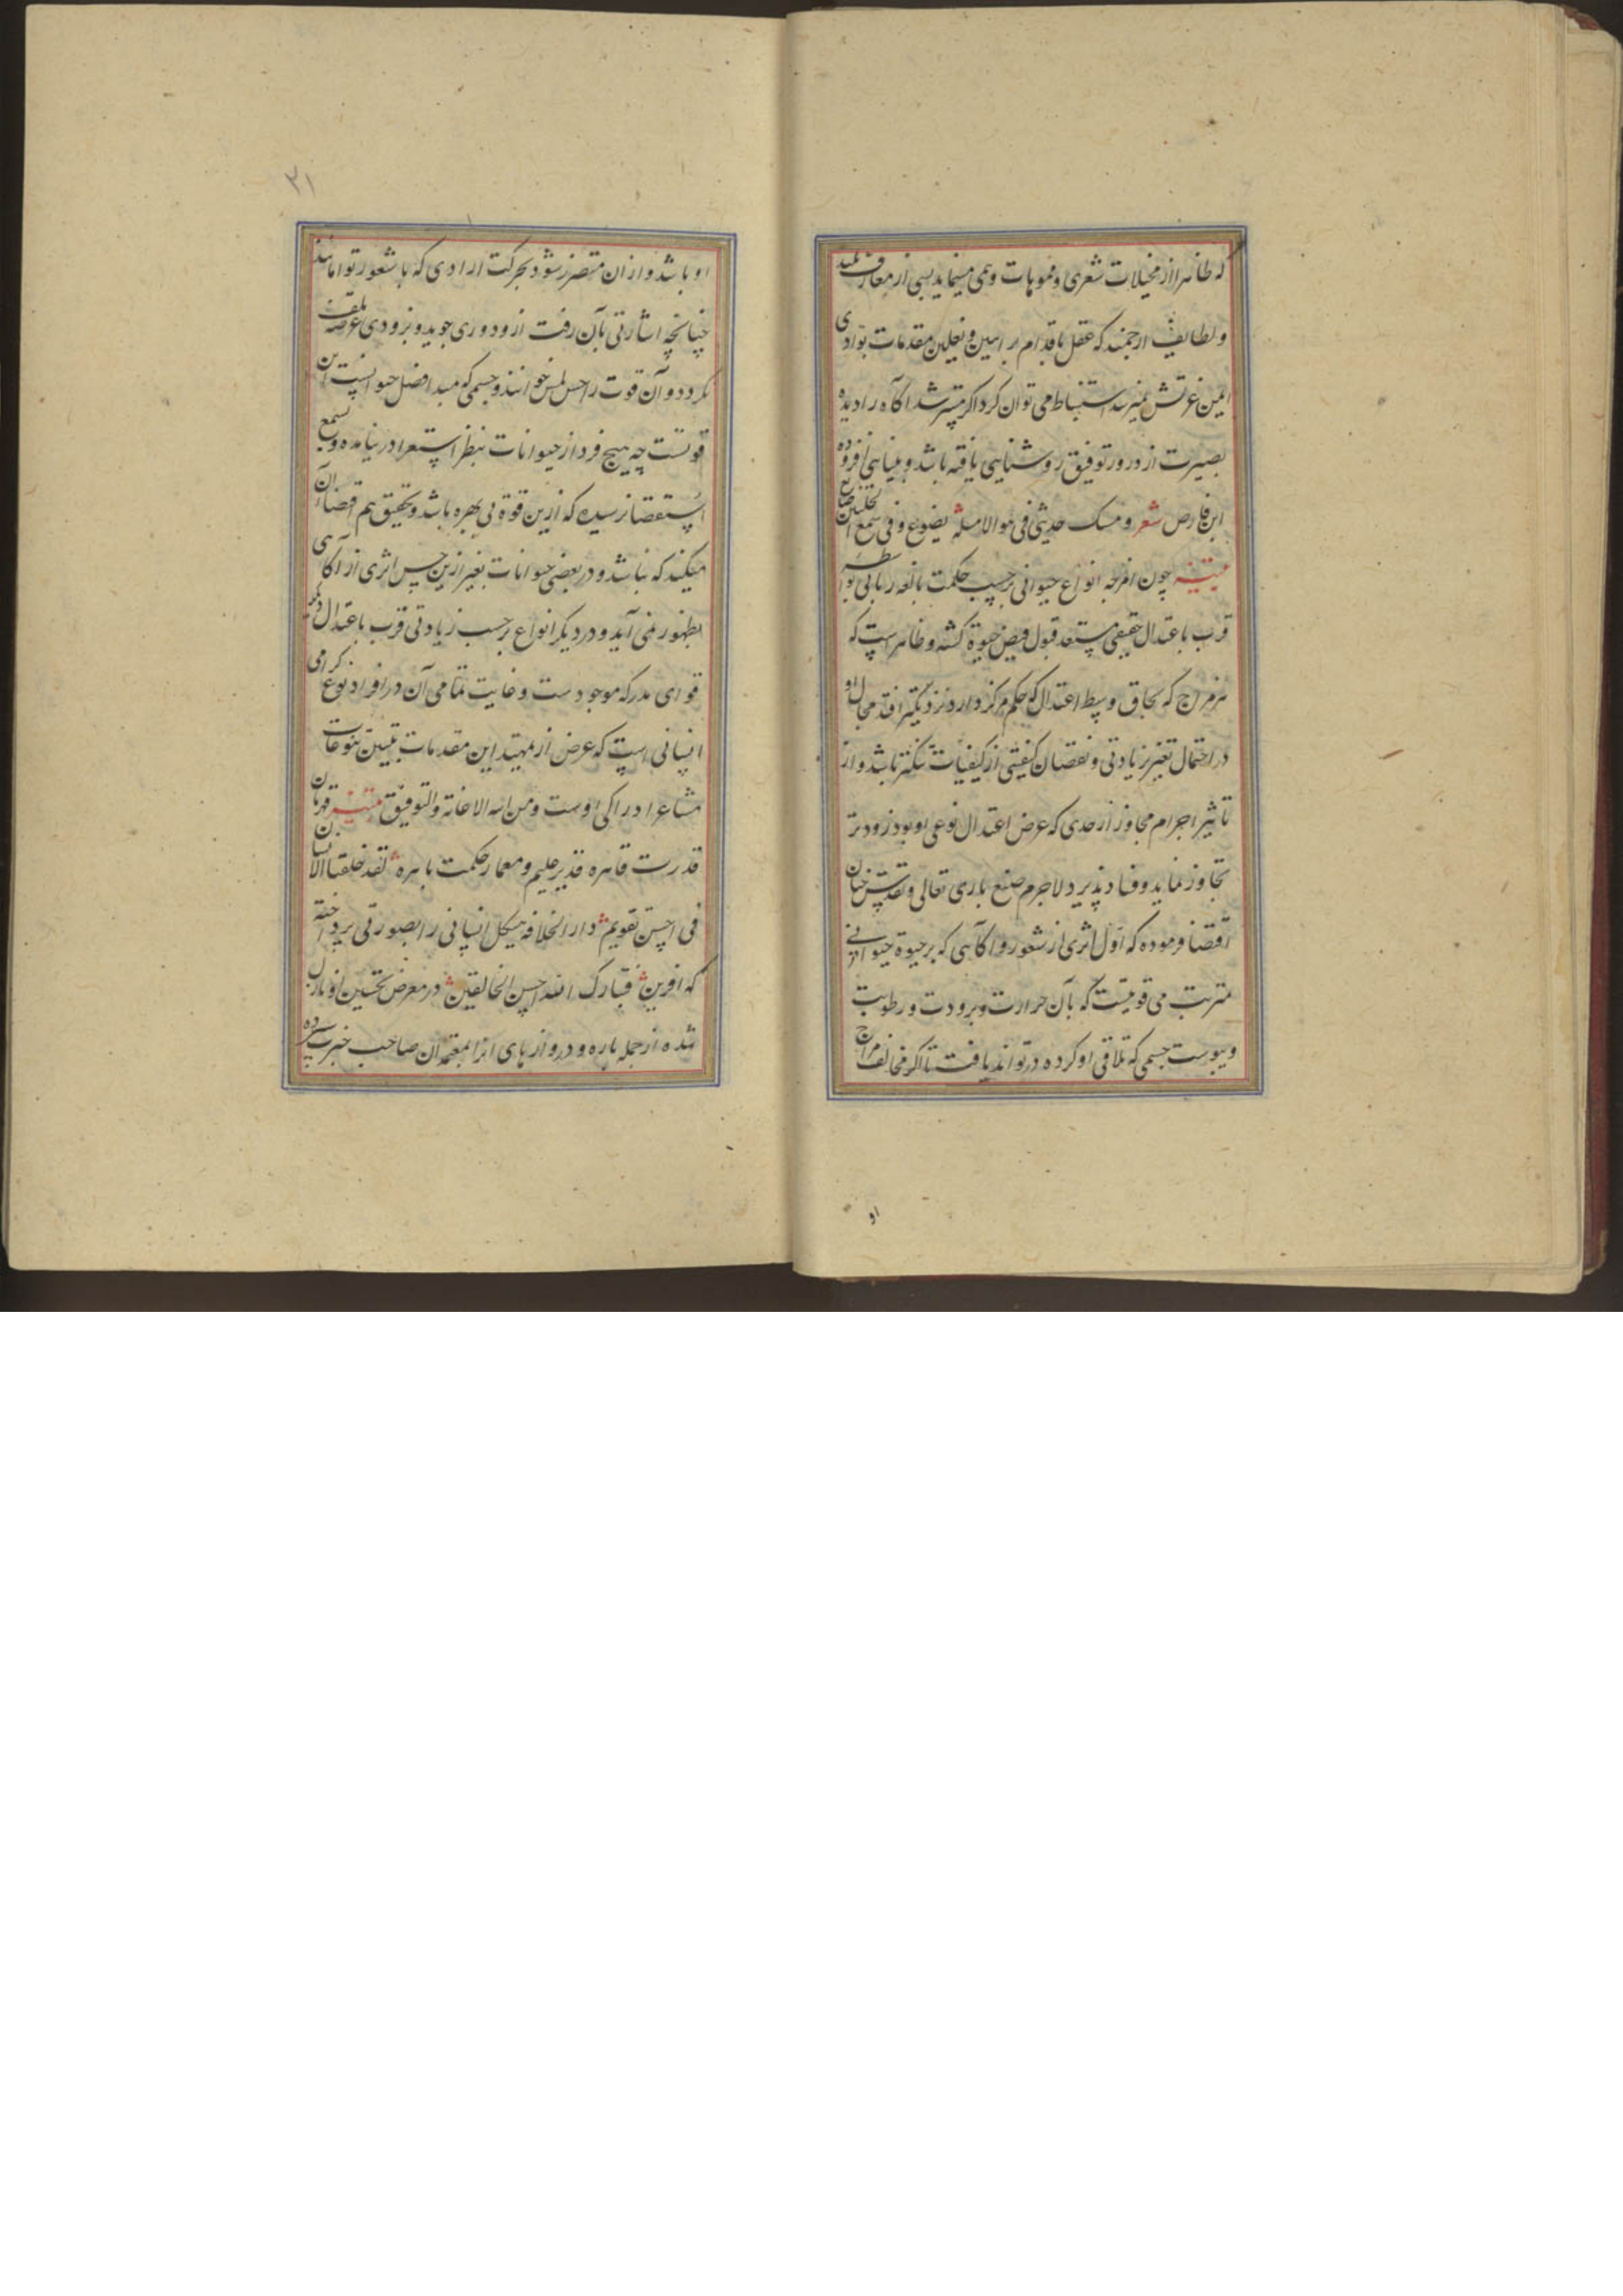 که ظاهرا از مخیلات شعری و مموهات وهمی مینماید بسی از معارف بلند
و لطایف ارجمند که عقل باقدام براهین و نعلین مقدمات بوادی
ایمن عزتش نمیرسد استنباط می توان کرد اگر مسترشد آگاه را دیده
بصیرت از درور توفیق روشنایی یافته باشد و بینایی افزوده
ابن فارض شعر و مسک حدیثی فی هوالا مله یضوع و فی سمع الخلیین ضایع
چون امزجه انواع حیوانی برحسب حکمت بالغه ربانی بواسطه
قرب باعتدال حقیقی مستعد قبول فیض حیوة کشته و ظاهر است که
هر مزاج که بحاق وسط اعتدال که حکم مرکز دارد نزدیکتر افتد مجال او
در احتمال تغیر زیادتی و نقصان کیفیتی از کیفیات تنکتر باشد و از
تاثیر اجرام مجاوز از حدی که عرض اعتدال نوعی او بود زودتر
تجاوز نماید و فساد پذیرد لاجرم صنع باری تعالی و تقدس چنان
اقتضا فرموده که اول اثری از شعور و آکاهی که بر حیوة حیوانی
مترتب می قوتیست که بآن حرارت و برودت و رطوبت
و یبوست جسمی که تلاقی او کرده درتواند یافت تا اکر مخالف مزاج
او
۲۱
او باشد و از ان متضرر شود بحرکت ارادی که با شعور توامانند
چنانچه اشارتی بآن رفت ازو دوری جوید و بزودی عرضه تلف
نکردد و آن قوت را حس لمس خوانند و جسمی که مبدا فصل حیوانیست این
قوتست چه هیچ فرد از حیوانات بنظر استقرا در نیامده و بسمع
استقصا نرسیده که ازین قوة بی بهره باشد و تحقیق هم اقتضاء آن
میکند که نباشد و در بعضی حیوانات بغیر ازین حس اثری از آکاهی
بظهور نمی آید و در دیکر انواع برحسب زیادتی قرب باعتدال دیکر
قوای مدرکه موجودست و غایت تمامی آن در افراد نوع کرامی
انسانی است که غرض از تمهید این مقدمات تبیین تنوعات
مشاعر ادراکی اوست و من الله الاعانة والتوفیق قهرمان
قدرت قاهره قدیر علیم و معمار حکمت باهره لقد خلقنا الانسان
فی احسن تقویم دار الخلافه هیکل انسانی را بصورتی پرداخته
که آفرین فتبارک الله احسن الخالقین در معرض تحسین او نازل
شده از جمله باره و دروازهای انرا بمعتمدان صاحب خبر سپرده